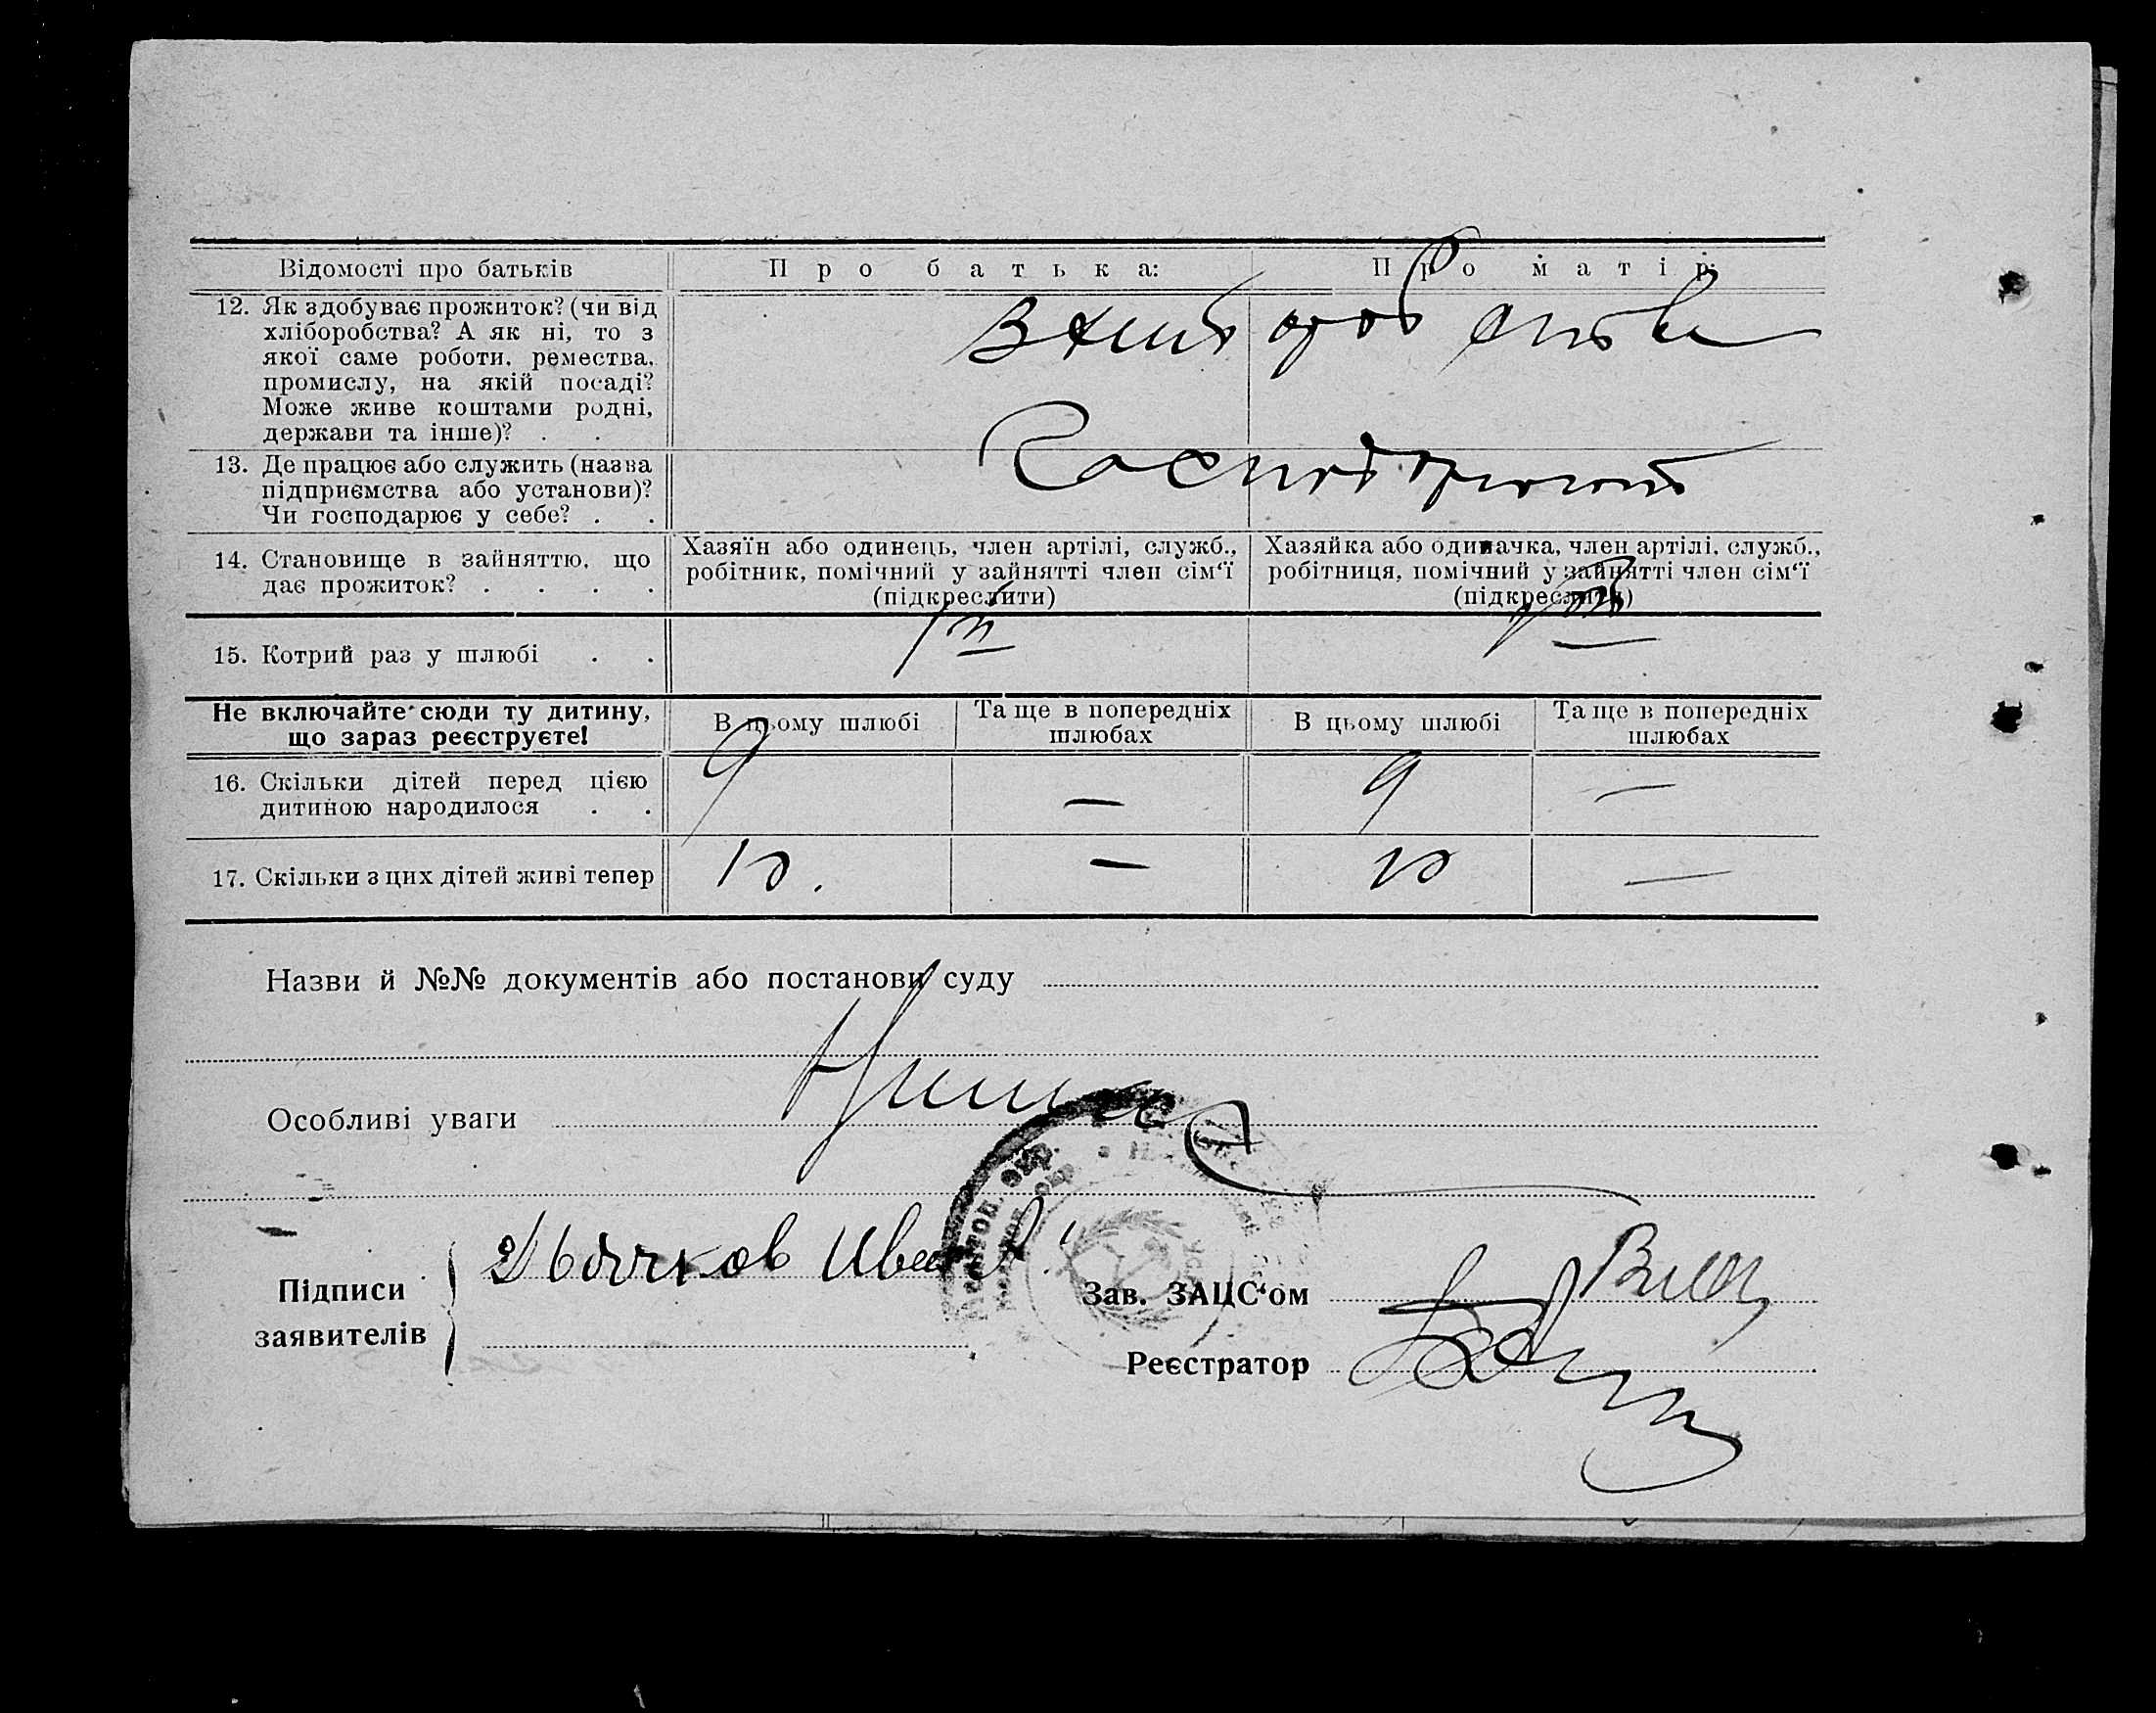 Відомості про батьків
Про батька:
Про матір:
12. Як здобуває прожиток? (чи від
хліборобства? А як ні, то з
якої саме роботи, ремества,
промислу, на якій посаді?
Може живе коштами родні,
держави та інше)? . .
13. Де працює або служить (назва
підприємства або установи)?
Чи господарює у себе? . .
14. Становище в зайняттю, що
дає прожиток? . . . .
Хазяїн або одинець, член артілі, служб.,
робітник, помічний у зайнятті член сім‘ї
(підкреслити)
Хазяйка або одиначка, член артілі, служб.,
робітниця, помічний у зайнятті член сім‘ї
(підкреслити)
15. Котрий раз у шлюбі . .
1й
Не включайте сюди ту дитину,
що зараз реєструєте!
В цьому шлюбі
Та ще в попередніх
шлюбах
В цьому шлюбі
Та ще в попередніх
шлюбах
16. Скільки дітей перед цією
дитиною народилося . .
9
—
9
—
17. Скільки з цих дітей живі тепер
10.
—
10
—
Назви й №№ документів або постанови суду
Особливі уваги
Підписи
заявителів
Дьячков Иван
Зав. ЗАЦС‘ом
Реєстратор